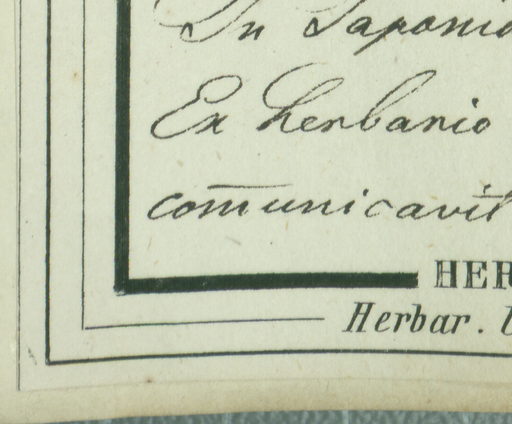 In Japonia
Ex herbario
com̅unicavit
HER
Herbar.